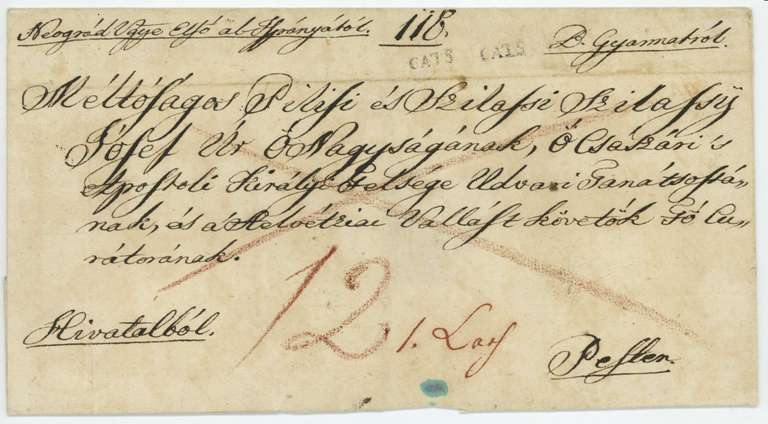 Neográd Vgye Első al-Ispányától. 118. B. Gyarmatról.
CATS CATS
Méltóságos Pilisi és Szilassi Szilassÿ
Jósef Úr Ő Nagyságának, Ő Császári 's
Apostoli Királyi Felsége Udvari Tanátsossá„
nak, és a Helvétziai Vallást követők Fő Cu„
rátorának.
12
1. Loth
Hivatalból.
Pesten.